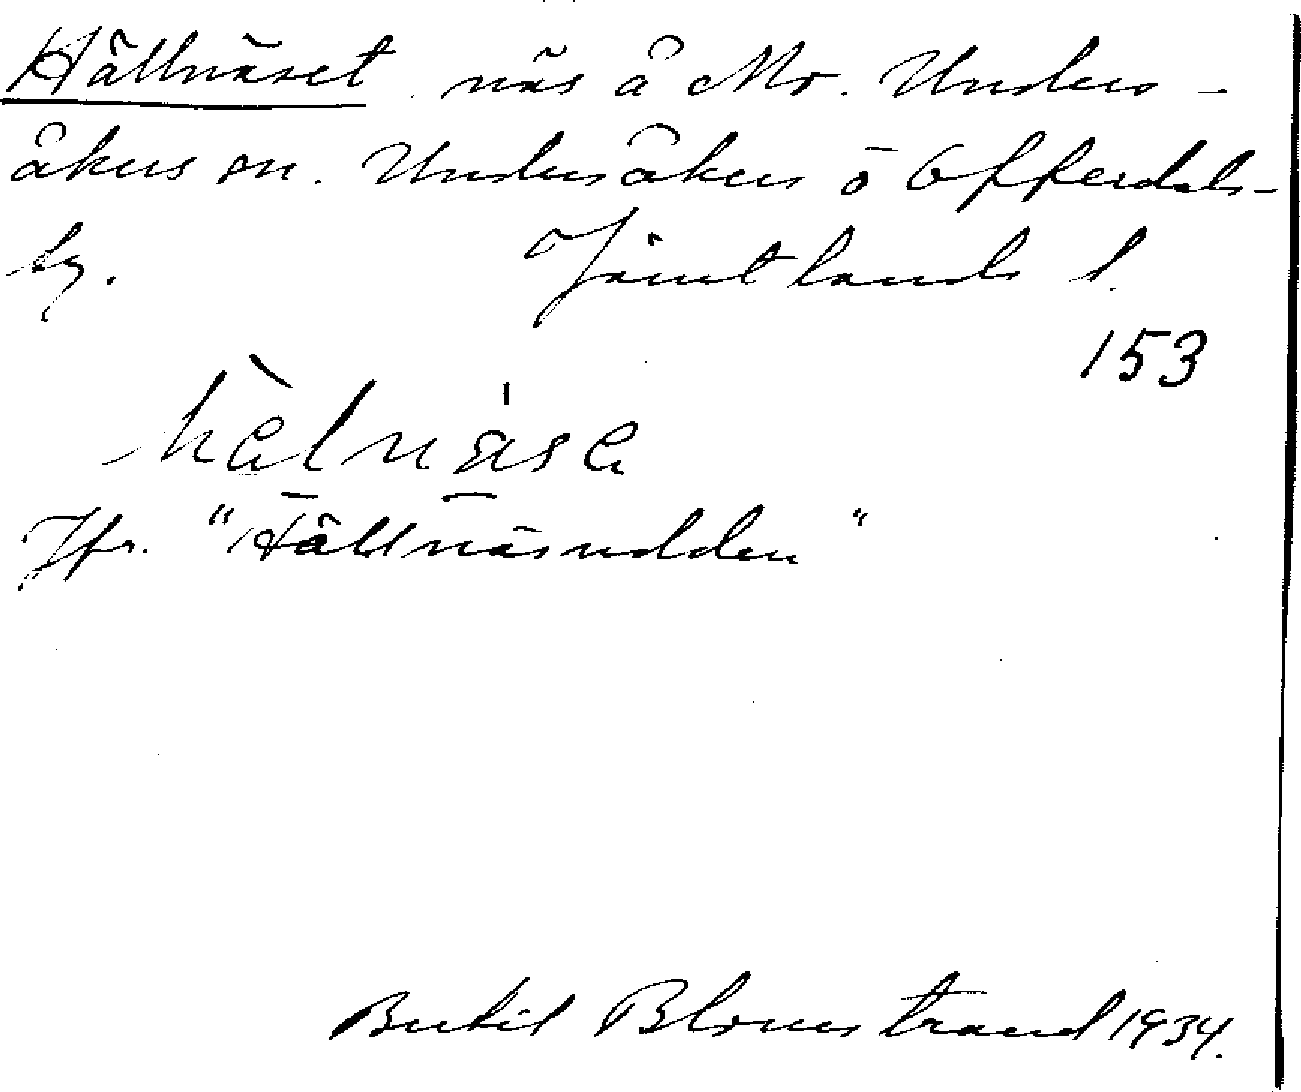 Hällnäset näs å Mo. Unders-
åkers sn. Undersåkers o Offerdals-
tg. Jämtlands l.
153
hèlnäsa
Jfr. "Hällnäsudden"
Bertil Blomstrand 1934.